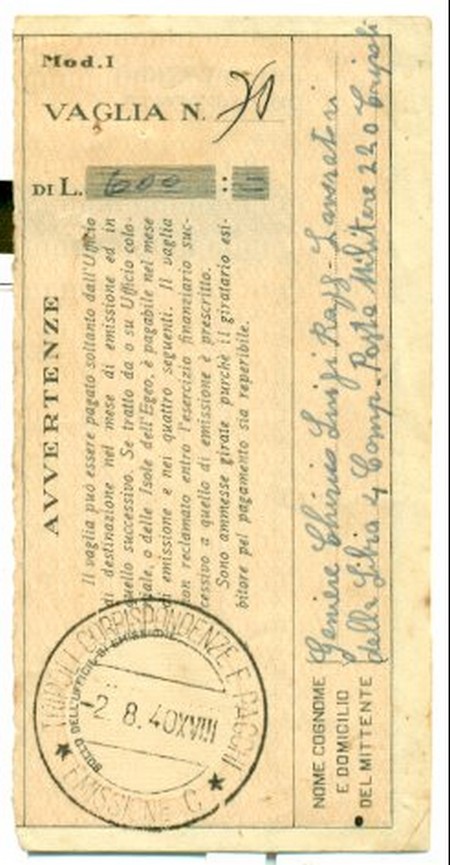 Mod. I
VAGLIA N. 70
DI L. 600
AVVERTENZE
Il vaglia può essere pagato soltanto dall'Ufficio
di destinazione nel mese di emissione ed in
quello successivo. Se tratto da o su Ufficio colo-
niale, o delle Isole dell'Egeo, è pagabile nel mese
di emissione e nei quattro seguenti. Il vaglia
non reclamato entro l'esercizio finanziario suc-
cessivo a quello di emissione è prescritto.
Sono ammesse girate purchè il giratario esi-
bitore pel pagamento sia reperibile.
TRIPOLI CORRISPONDENZE E PACCHI
BOLLO DELL'UFFICIO DI EMISSIONE
-2.8.40XVIII
EMISSIONE C
NOME COGNOME
E DOMICILIO
DEL MITTENTE
Geniere Chirico Luigi Ragg. Lavoratori
della Libia 4 Comp. Posta Militare 220 Tripoli